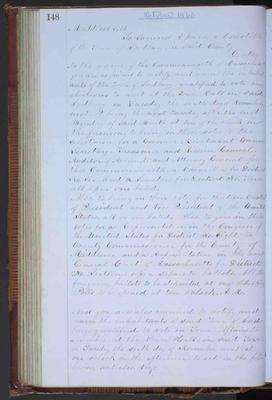 148
October 1860
Middlesex ss.
To Samuel S. a Constable
of the Town of Sudbury in said County
Greeting
In the name of the Commonwealth of Massachusetts
you are required to notify and warn the inhabit
ants of the Town of Sudbury qualified to vote in
elections to meet at the Town Hall in said
Sudbury on Tuesday the sixth day of November
next it being the next Tuesday after the first
Monday of said Month at ten of the clock in
the forenoon to bring in their votes to the
Selectmen for a Governor Lieutenant Governor
Secretary Treasurer and Receiver General
Auditor of Accounts and Attorney General for
this Commonwealth a Councillor for District
No Six and a Senator for District No Three
all upon one ballot.
Also to bring in their votes for the Electors
of President and Vice President of the United
States all on one ballot. Also to give in their
votes for a Representative in the Congress of
the United States for District No Eight a
County Commissioner for the County of
Middlesex and a Representative in the
General Court of Massachusetts for District
upon separate ballots. All the
foregoing ballots to be deposited at one
Polls to be opened at ten oclock A.M.
And you are also required to notify and
warn the inhabitants of said Town of Sud-
bury qualified to vote in Town Affairs to
assemble at the Town House in said Town
on Tuesday the sixth day of November next at
one oclock in the afternoon to act on the fol-
lowing articles viz.